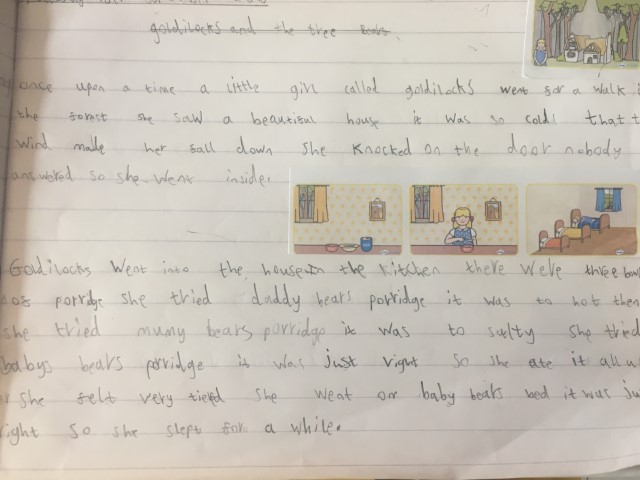 goldilocks and the tree bears.
once upon a time a little girl called goldilocks went for a walk i
the forist she saw a beautiful house it was so cold! that t
wind made her fall down she knocked on the door nobody
answored so she went inside.
Goldilocks went into the house in the kitchen there were three bow
of porridge she tried daddy bears porridge it was to hot then
she tried mumy bears porridge it was to salty she tried
babys bears porridge it was just right so she ate it all u
she felt very tierd she went on baby bears bed it was ju
right so she slept for a while.